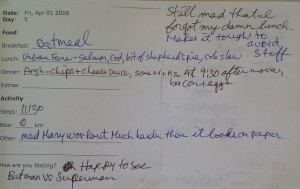 Date: Fri, Apr 01 2016
Day: 5
Still mad that I
forgot my damn lunch.
Makes it tough to
avoid
stuff
Food
Breakfast: Oatmeal
Lunch: Urban Fare - Salmon, Cod, bit of shepherds pie, cole slaw
Dinner: Argh - chips + cheese sauce, some M+Ks. At 9:30 after movie,
bacon + eggs
Extras:
Activity
Steps: 11130
Bike: 0 km
Other: mad Mary workout. Much harder than it looks on paper.
How are you feeling? Happy to see
Batman VS Superman